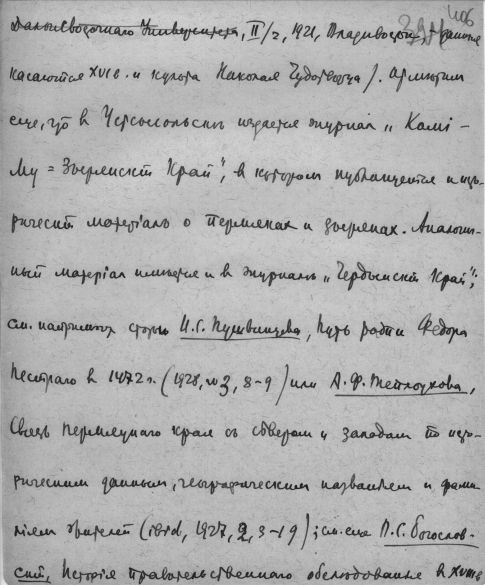 406
Дальневосточнаго Университета, II/2, 1921, Владивосток,
касаются XVII в. и культа Николая Чудотворца). Отметим
еще, что в Устьсысольске издается журнал „Комі -
Му = Зырянскій Край", в котором публикуется и исто-
рическій матеріал о пермяках и зырянах. Аналогич-
ный матеріал имеется и в журнале „Чердынскій Край";
см. напримѣр статью И.С. Пушвинцева, Путь рати Федора
Пестраго в 1472 г. (1928, № 3, 8-9) или А.Ф. Теплоухова,
Связь Пермяцкаго края съ сѣвером и западом по исто-
рическим данным, географическим названіям и фами-
ліям жителей (ibid, 1927, 2, 3-19); см. еще П.С. Богослов-
скій, Исторія правительственнаго обслѣдованія в XVIII в